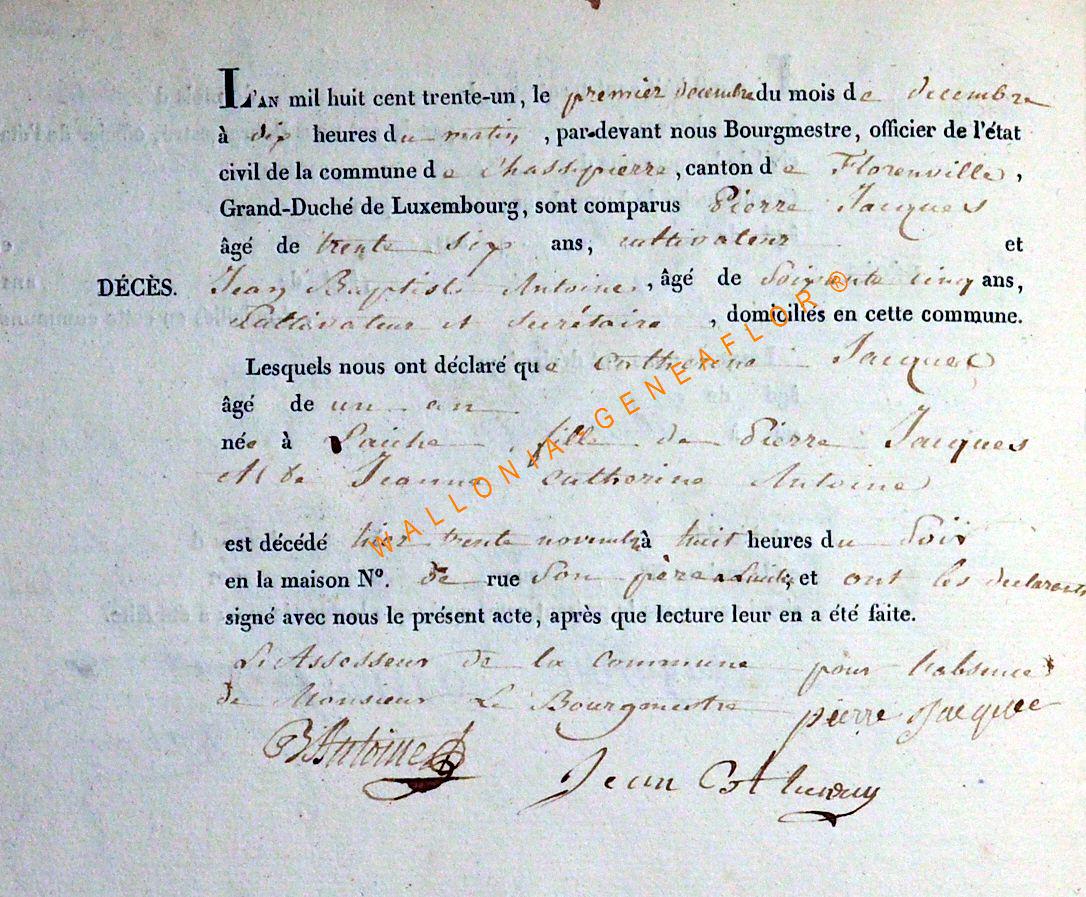 L'AN mil huit cent trente-un, le premier decembre du mois de decembre
à dix heures du matin, par-devant nous Bourgmestre, officier de l'état
civil de la commune de Chassepierre, canton de Florenville,
Grand-Duché de Luxembourg, sont comparus Pierre Jacques
âgé de trente six ans, cultivateur et
DÉCÈS. Jean Baptiste Antoine, âgé de Soixante cinq ans,
Cultivateur et Secrétaire, domiciliés en cette commune.
Lesquels nous ont déclaré que Catherine Jacques
âgé de un an
née à Laiche fille de Pierre Jacques
et de Jeanne Catherine Antoine
est décédé hier trente novembre à huit heures du Soir
en la maison Nº. de rue Son père a Laiche; et ont les declarants
signé avec nous le présent acte, après que lecture leur en a été faite.
L'Assesseur de la Commune pour l'absence
de Monsieur Le Bourgmestre pierre Jacques
Antoine
Jean
WALLONIA-GENEAFLOR®